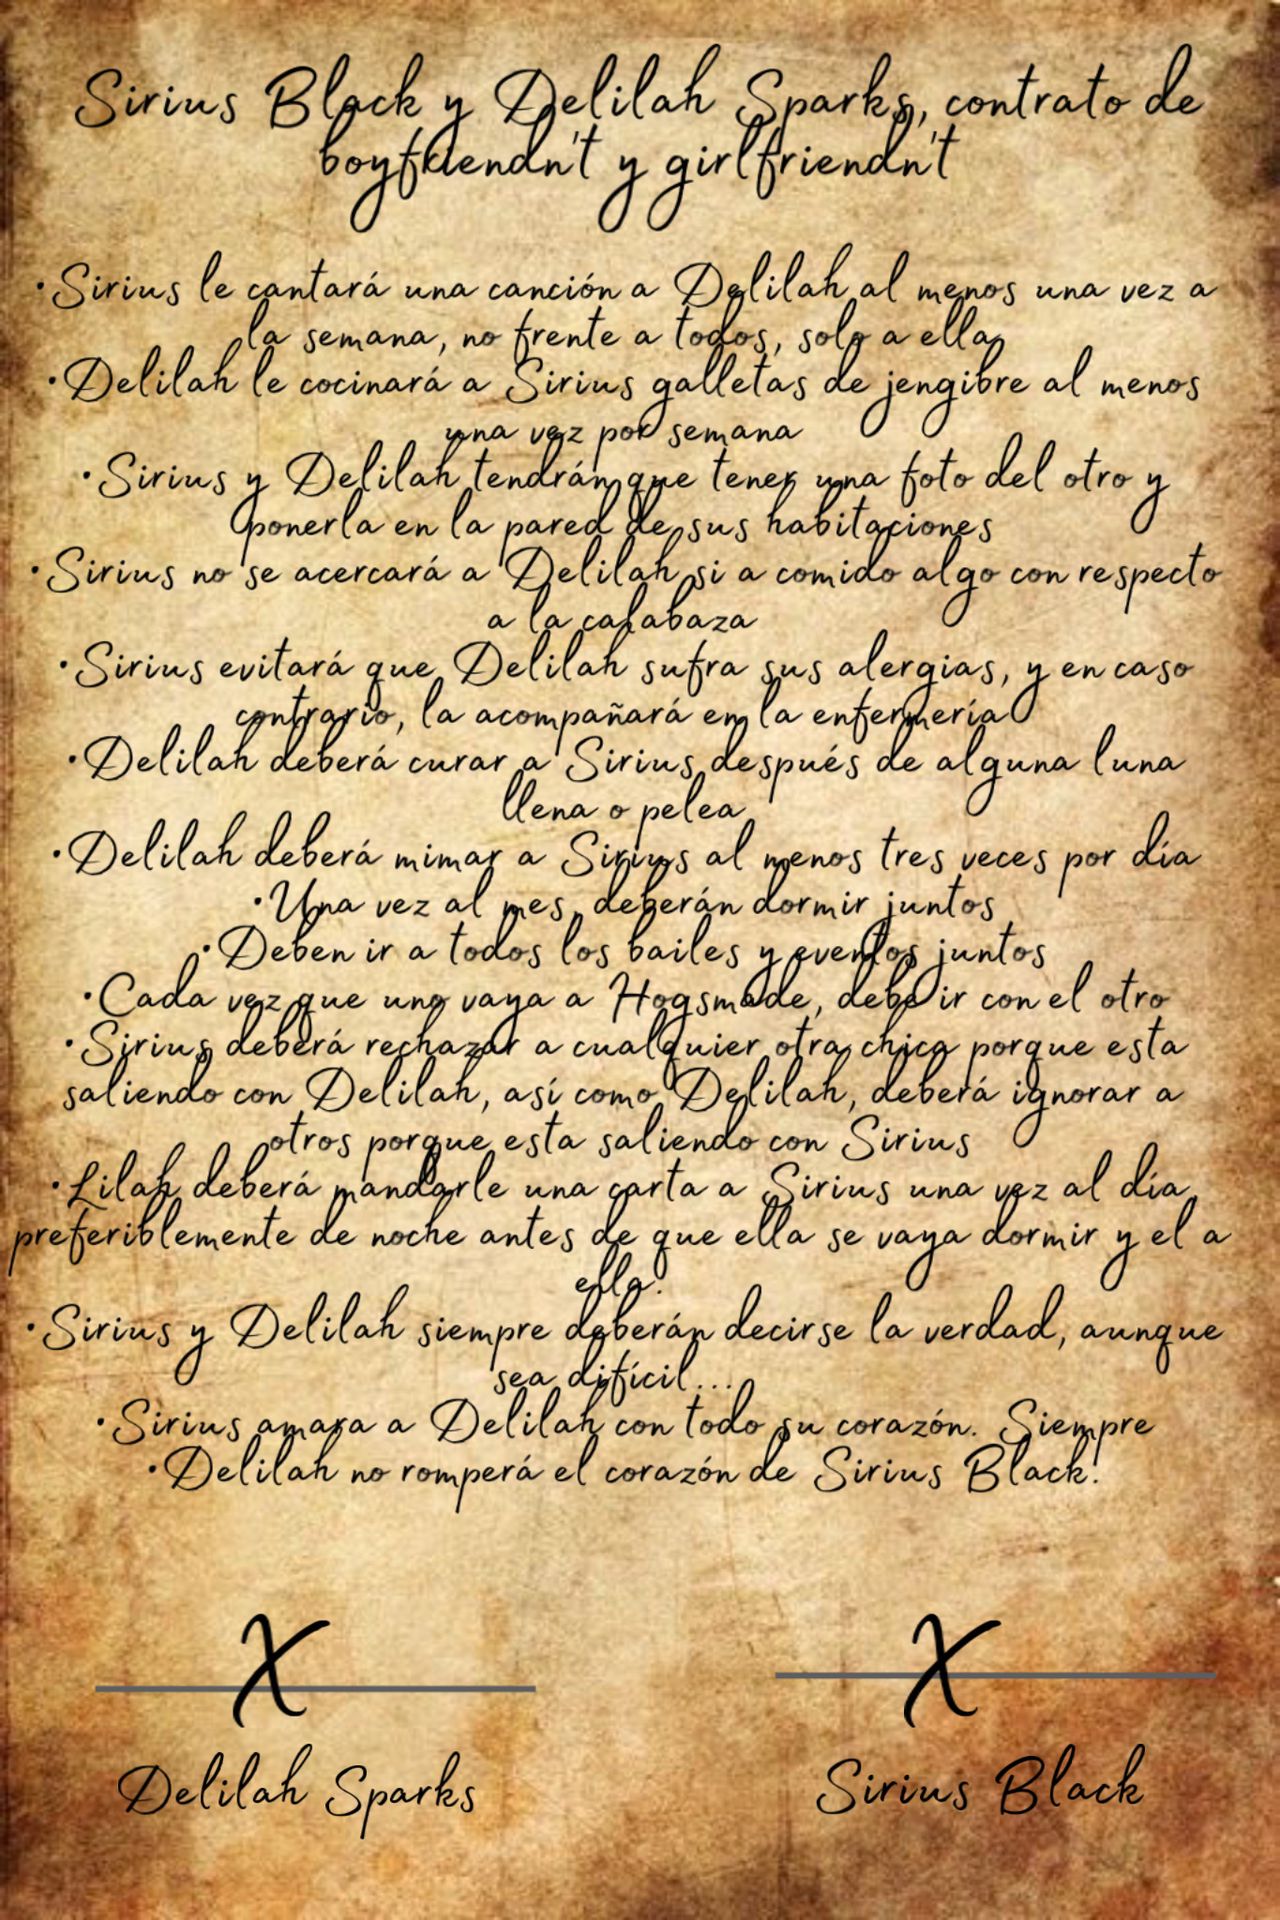 Sirius Black y Delilah Sparks, contrato de
boyfriendn't y girlfriendn't
•Sirius le cantará una canción a Delilah al menos una vez a
la semana, no frente a todos, solo a ella
•Delilah le cocinará a Sirius galletas de jengibre al menos
una vez por semana
•Sirius y Delilah tendrán que tener una foto del otro y
ponerla en la pared de sus habitaciones
•Sirius no se acercará a Delilah si a comido algo con respecto
a la calabaza
•Sirius evitará que Delilah sufra sus alergias, y en caso
contrario, la acompañará en la enfermería
•Delilah deberá curar a Sirius después de alguna luna
llena o pelea
•Delilah deberá mimar a Sirius al menos tres veces por día
•Una vez al mes, deberán dormir juntos
•Deben ir a todos los bailes y eventos juntos
•Cada vez que uno vaya a Hogsmade, debe ir con el otro
•Sirius deberá rechazar a cualquier otra chica porque esta
saliendo con Delilah, así como Delilah, deberá ignorar a
otros porque esta saliendo con Sirius
•Lilah deberá mandarle una carta a Sirius una vez al día
preferiblemente de noche antes de que ella se vaya dormir y el a
ella.
•Sirius y Delilah siempre deberán decirse la verdad, aunque
sea difícil...
•Sirius amara a Delilah con todo su corazón. Siempre
•Delilah no romperá el corazón de Sirius Black.
X X
Delilah Sparks Sirius Black